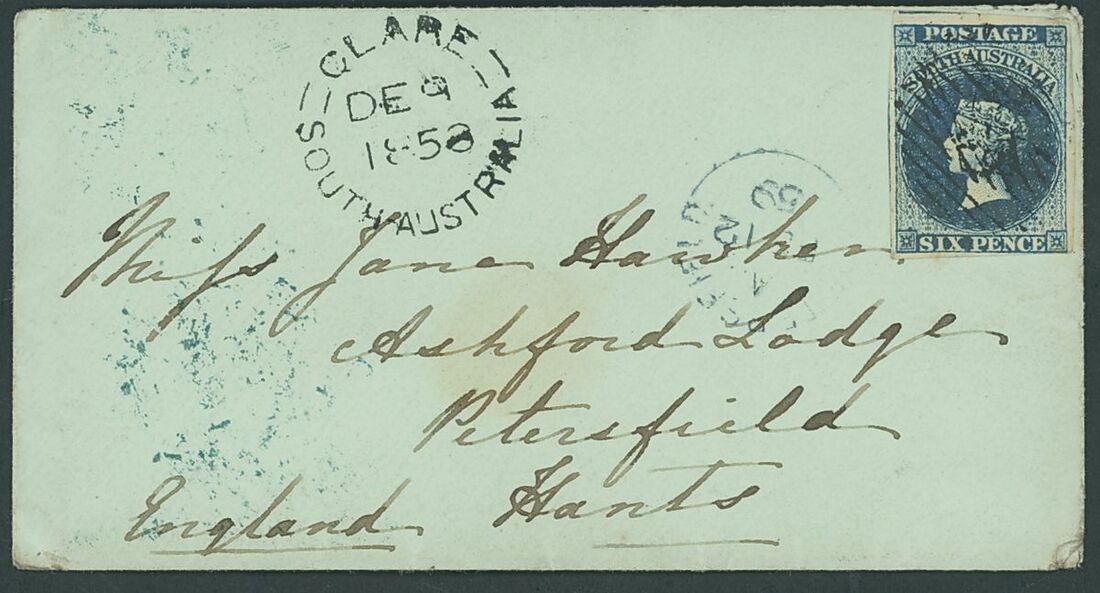 CLARE
DE 9
1858
SOUTH AUSTRALIA
POSTAGE
SOUTH AUSTRALIA
SIX PENCE
Miss Jane Hawker
Ashford Lodge
Petersfield
Hants
England